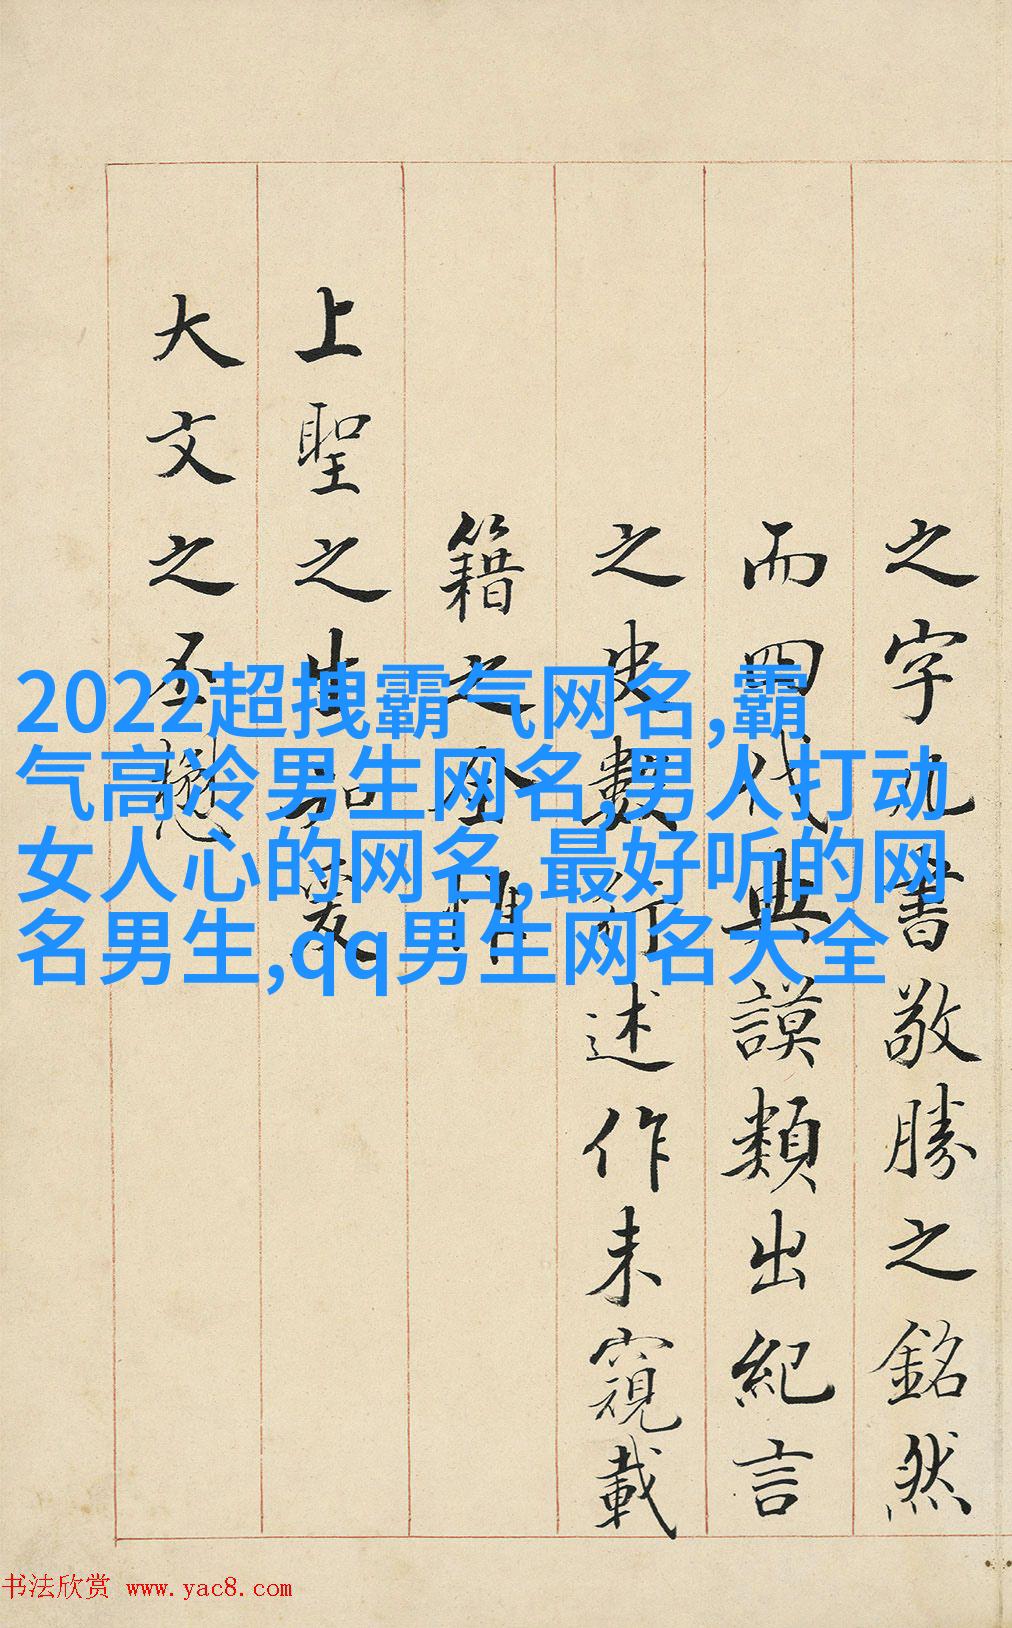 之字丹書敬勝之銘然
而四代典謨類出紀言
之史數行述作未窺載
籍之全惟
上聖之生知爰
大文之丕懋
2022超拽霸气网名,霸
气高冷男生网名,男人打动
女人心的网名,最好听的网
名男生,qq男生网名大全
书法欣赏 www.yac8.com